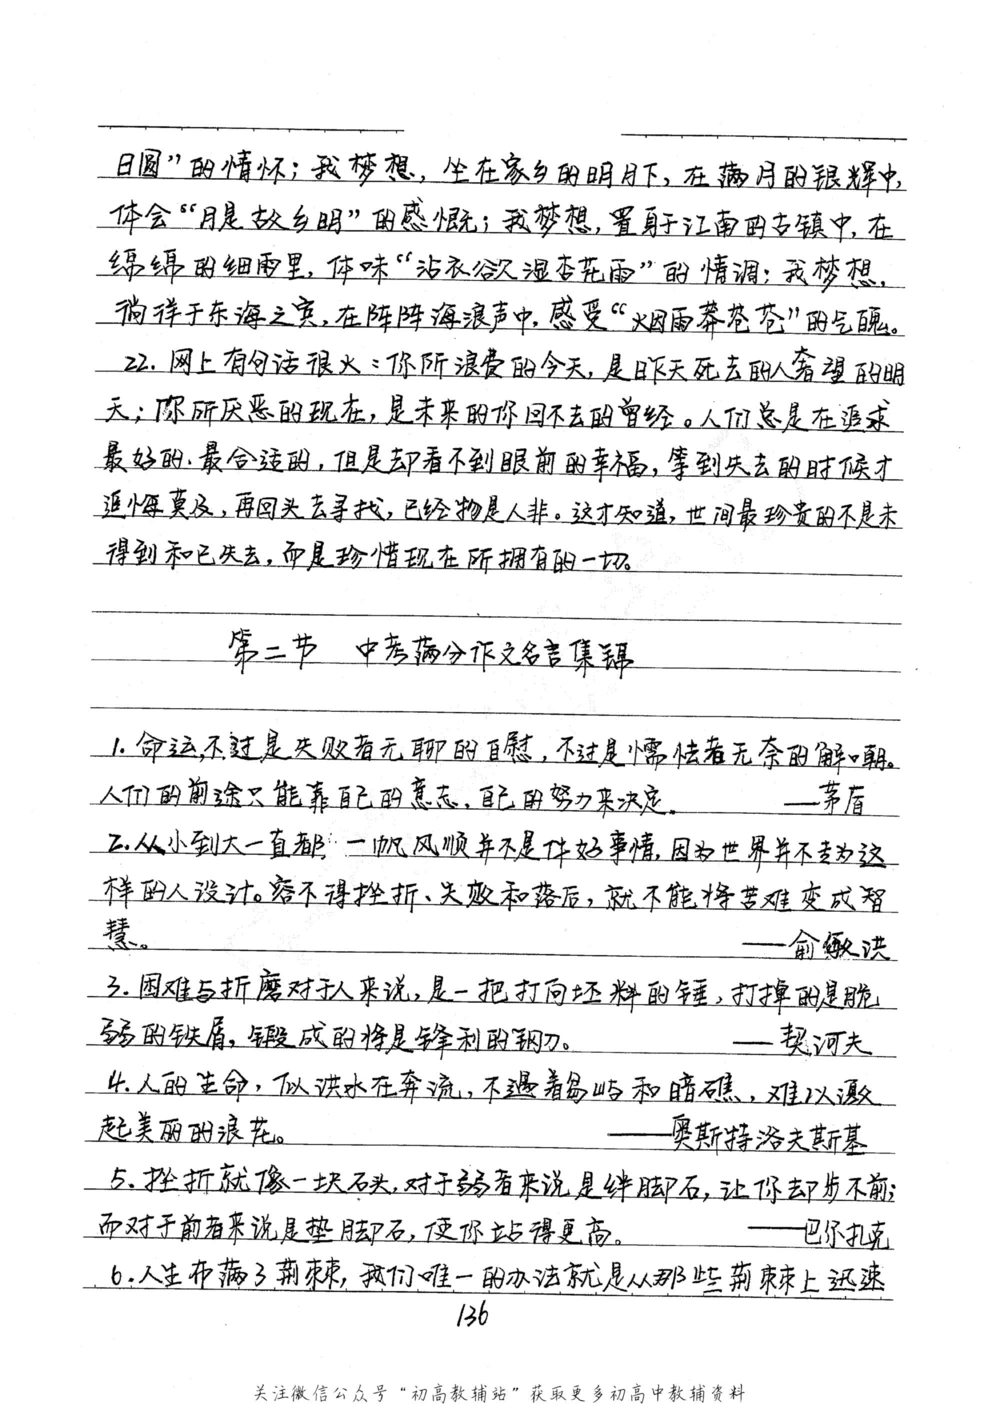 日圆”的情怀；我梦想，坐在家乡的明月下，在满月的银辉中，
体会“月是故乡明”的感慨；我梦想，置身于江南的古镇中，在
绵绵的细雨里，体味“沾衣欲湿杏花雨”的情调；我梦想，
徜徉于东海之宾，在阵阵海浪声中，感受“烟雨莽苍苍”的气魄。
22. 网上有句话很火：你所浪费的今天，是昨天死去的人奢望的明
天；你所厌恶的现在，是未来的你回不去的曾经。人们总是在追求
最好的、最合适的，但是却看不到眼前的幸福，等到失去的时候才
追悔莫及，再回头去寻找，已经物是人非。这才知道，世间最珍贵的不是未
得到和已失去，而是珍惜现在所拥有的一切。
第二节 中考满分作文名言集锦
1. 命运，不过是失败者无聊的自慰，不过是懦怯者无奈的解嘲。
人们的前途只能靠自己的意志、自己的努力来决定。 ——茅盾
2. 从小到大一直都一帆风顺并不是件好事情，因为世界并不专为这
样的人设计。容不得挫折、失败和落后，就不能将苦难变成智
慧。 ——俞敏洪
3. 困难与折磨对于人来说，是一把打向坯料的锤，打掉的是脆
弱的铁屑，锻成的将是锋利的钢刀。 ——契诃夫
4. 人的生命，似洪水在奔流，不遇着岛屿和暗礁，难以激
起美丽的浪花。 ——奥斯特洛夫斯基
5. 挫折就像一块石头，对于弱者来说是绊脚石，让你却步不前；
而对于前者来说是垫脚石，使你站得更高。 ——巴尔扎克
6. 人生布满了荆棘，我们唯一的办法就是从那些荆棘上迅速
136
关注微信公众号“初高教辅站”获取更多初高中教辅资料